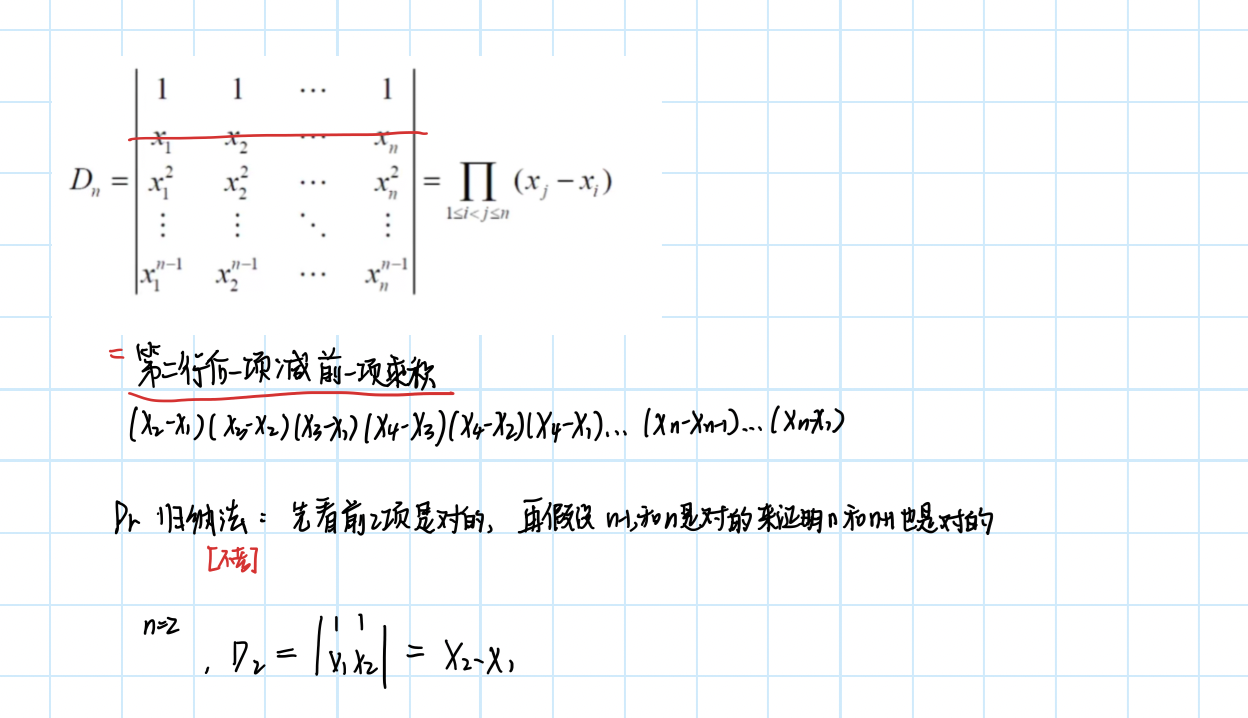 1 1 ⋯ 1
x₁ x₂ ⋯ xₙ
Dₙ = x₁² x₂² ⋯ xₙ² = ∏ (xⱼ − xᵢ)
1≤i<j≤n
⋮ ⋮ ⋱ ⋮
x₁ⁿ⁻¹ x₂ⁿ⁻¹ ⋯ xₙⁿ⁻¹
= 第二行后一项减前一项乘积
(x₂-x₁)(x₃-x₂)(x₃-x₁)(x₄-x₃)(x₄-x₂)(x₄-x₁)... (xₙ-xₙ₋₁)...(xₙ-x₁)
归纳法: 先看前2项是对的, 再假设 n-1和n是对的来证明n和n+1也是对的
[不考]
n=2
, D₂ = |1 1
x₁ x₂| = x₂-x₁